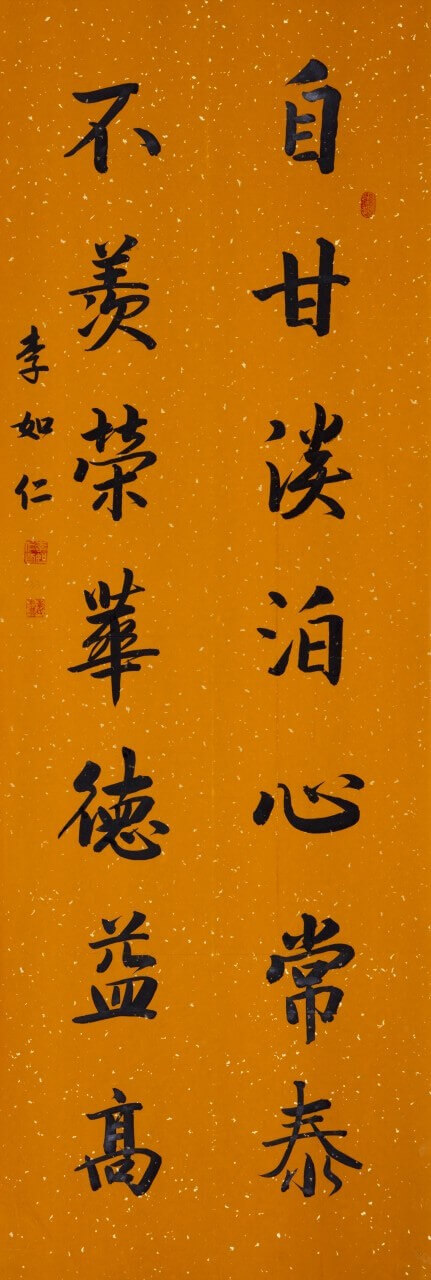 自甘淡泊心常泰
不羡榮華德益高
李如仁